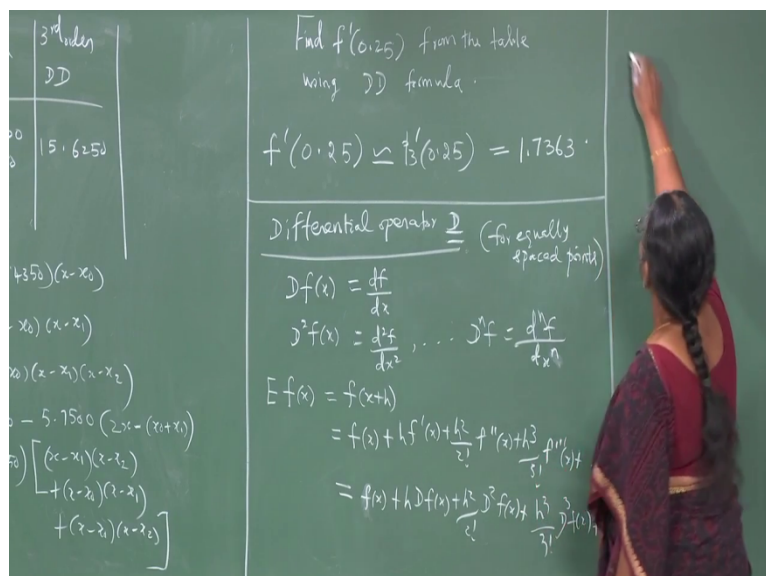 3rd order
DD
15.6250
4350)(x-x0)
x0)(x-x1)
x0)(x-x1)(x-x2)
- 5.7500 (2x-(x0+x1)
[(x-x1)(x-x2)
+(x-x0)(x-x1)
+(x-x1)(x-x2)]
Find f'(0.25) from the table
using DD formula.
f'(0.25) ≃ f3'(0.25) = 1.7363.
Differential operator D (for equally
spaced points)
Df(x) = df/dx
D²f(x) = d²f/dx² , .... Dⁿf = dⁿf/dxⁿ
E f(x) = f(x+h)
= f(x) + hf'(x) + h²/2! f''(x) + h³/3! f'''(x) +
= f(x) + hDf(x) + h²/2! D²f(x) + h³/3! D³f(x) +